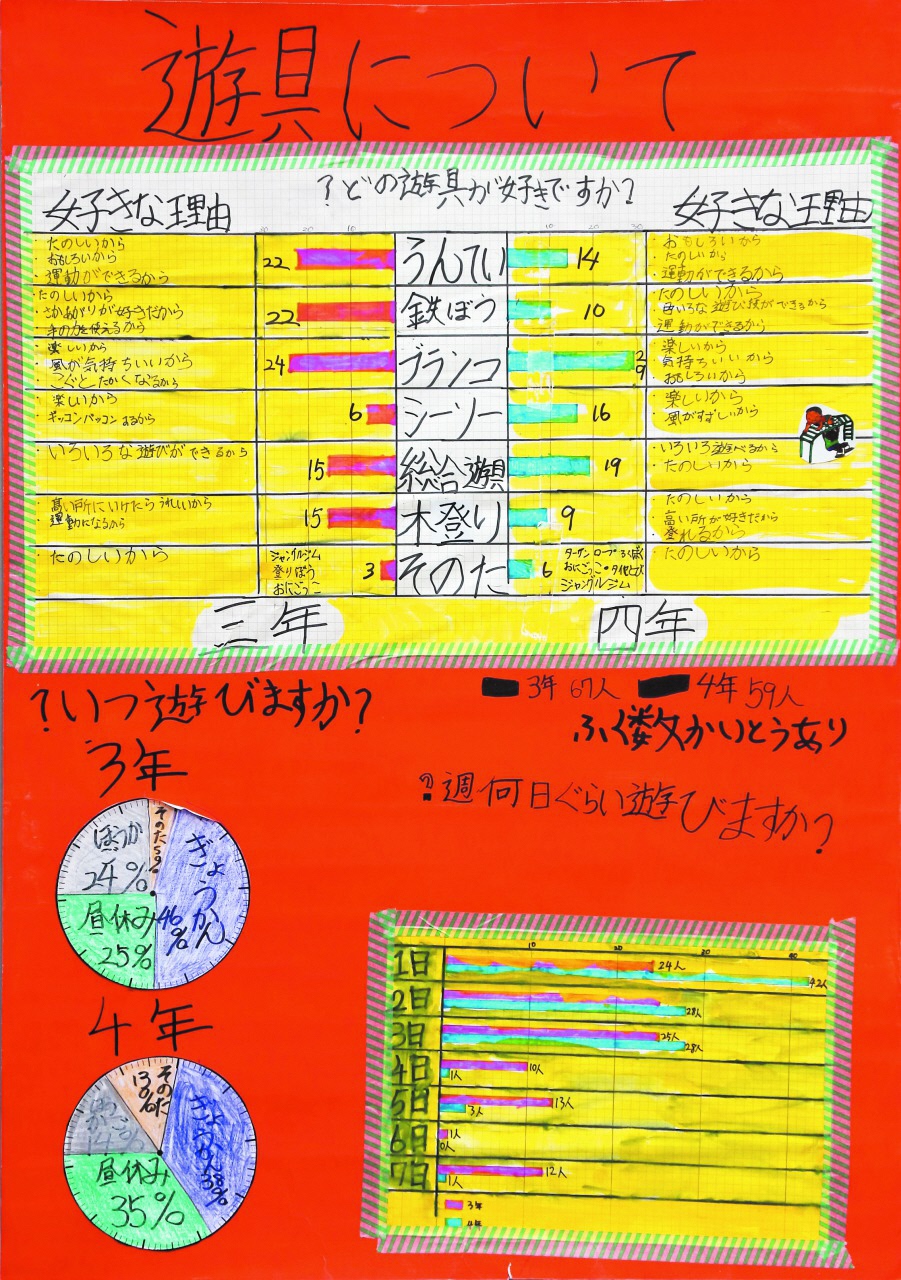 遊具について
?どの遊具が好きですか?
好きな理由
好きな理由
30 20 10
10 20 30
・たのしいから
・おもしろいから
・運動ができるから
22
うんてい
14
・おもしろいから
・たのしいから
・運動ができるから
・たのしいから
・さかあがりが好きだから
・手の力を使えるから
22
鉄ぼう
10
・たのしいから
・色いろな遊び技ができるから
・運動ができるから
・楽しいから
・風が気持ちいいから
・こぐとたかくなるから
24
ブランコ
29
・楽しいから
・気持ちいいから
・おもしろいから
・楽しいから
・ギッコンバッコンするから
6
シーソー
16
・楽しいから
・風がすずしいから
・いろいろな遊びができるから
15
総合遊具
19
・いろいろ遊べるから
・たのしいから
・高い所にいけたらうれしいから
・運動になるから
15
木登り
9
・たのしいから
・高い所が好きだから
・登れるから
・たのしいから
ジャングルジム
登りぼう
おにごっこ
3
そのた
6
ターザンロープ・ろく
おにごっこ・タイヤとび
ジャングルジム
・たのしいから
三年
四年
3年67人 4年59人
ふく数かいとうあり
?いつ遊びますか?
3年
ぎょうかん
46%
昼休み
25%
ほうか
24%
そのた5%
4年
ぎょうかん38%
昼休み
35%
14%
そのた
13%
?週何日ぐらい遊びますか?
10 20 30 40
1日
24人
42人
2日
28人
3日
25人
28人
4日
10人
1人
5日
13人
3人
6日
1人
0人
7日
12人
1人
3年
4年